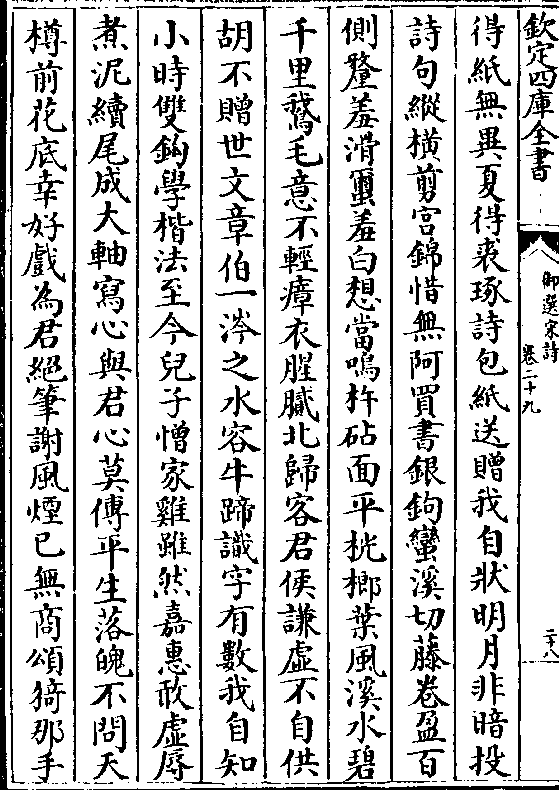 欽定四庫全書
御選宋詩
卷二十九
二十八
得紙無異夏得裘琢詩包紙送贈我自狀明月非暗投
詩句縱横剪宫錦惜無阿買書銀鉤蠻溪切藤卷盈百
側釐羞滑璽羞白想當鳴杵砧面平桄榔葉風溪水碧
千里鵞毛意不輕瘴衣腥膩北歸客君侯謙虛不自供
胡不贈世文章伯一涔之水容牛蹄識字有數我自知
小時雙鈎學楷法至今兒子憎家雞雖然嘉惠敢虛辱
煮泥續尾成大軸寫心與君心莫傳平生落魄不問天
樽前花底幸好戲為君絕筆謝風煙已無商頌猗那手